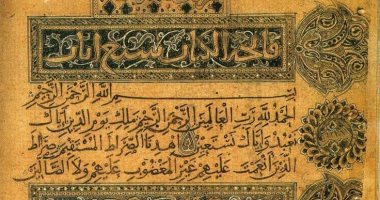 فاتحة الكتاب سبع ايات
بسم الله الرحمن الرحيم
الحمد لله رب العالمين الرحمن الرحيم ملك يوم الدين اياك
نعبد واياك نستعين اهدنا الصراط المستقيم صراط
الذين انعمت عليهم غير المغضوب عليهم ولا الضالين